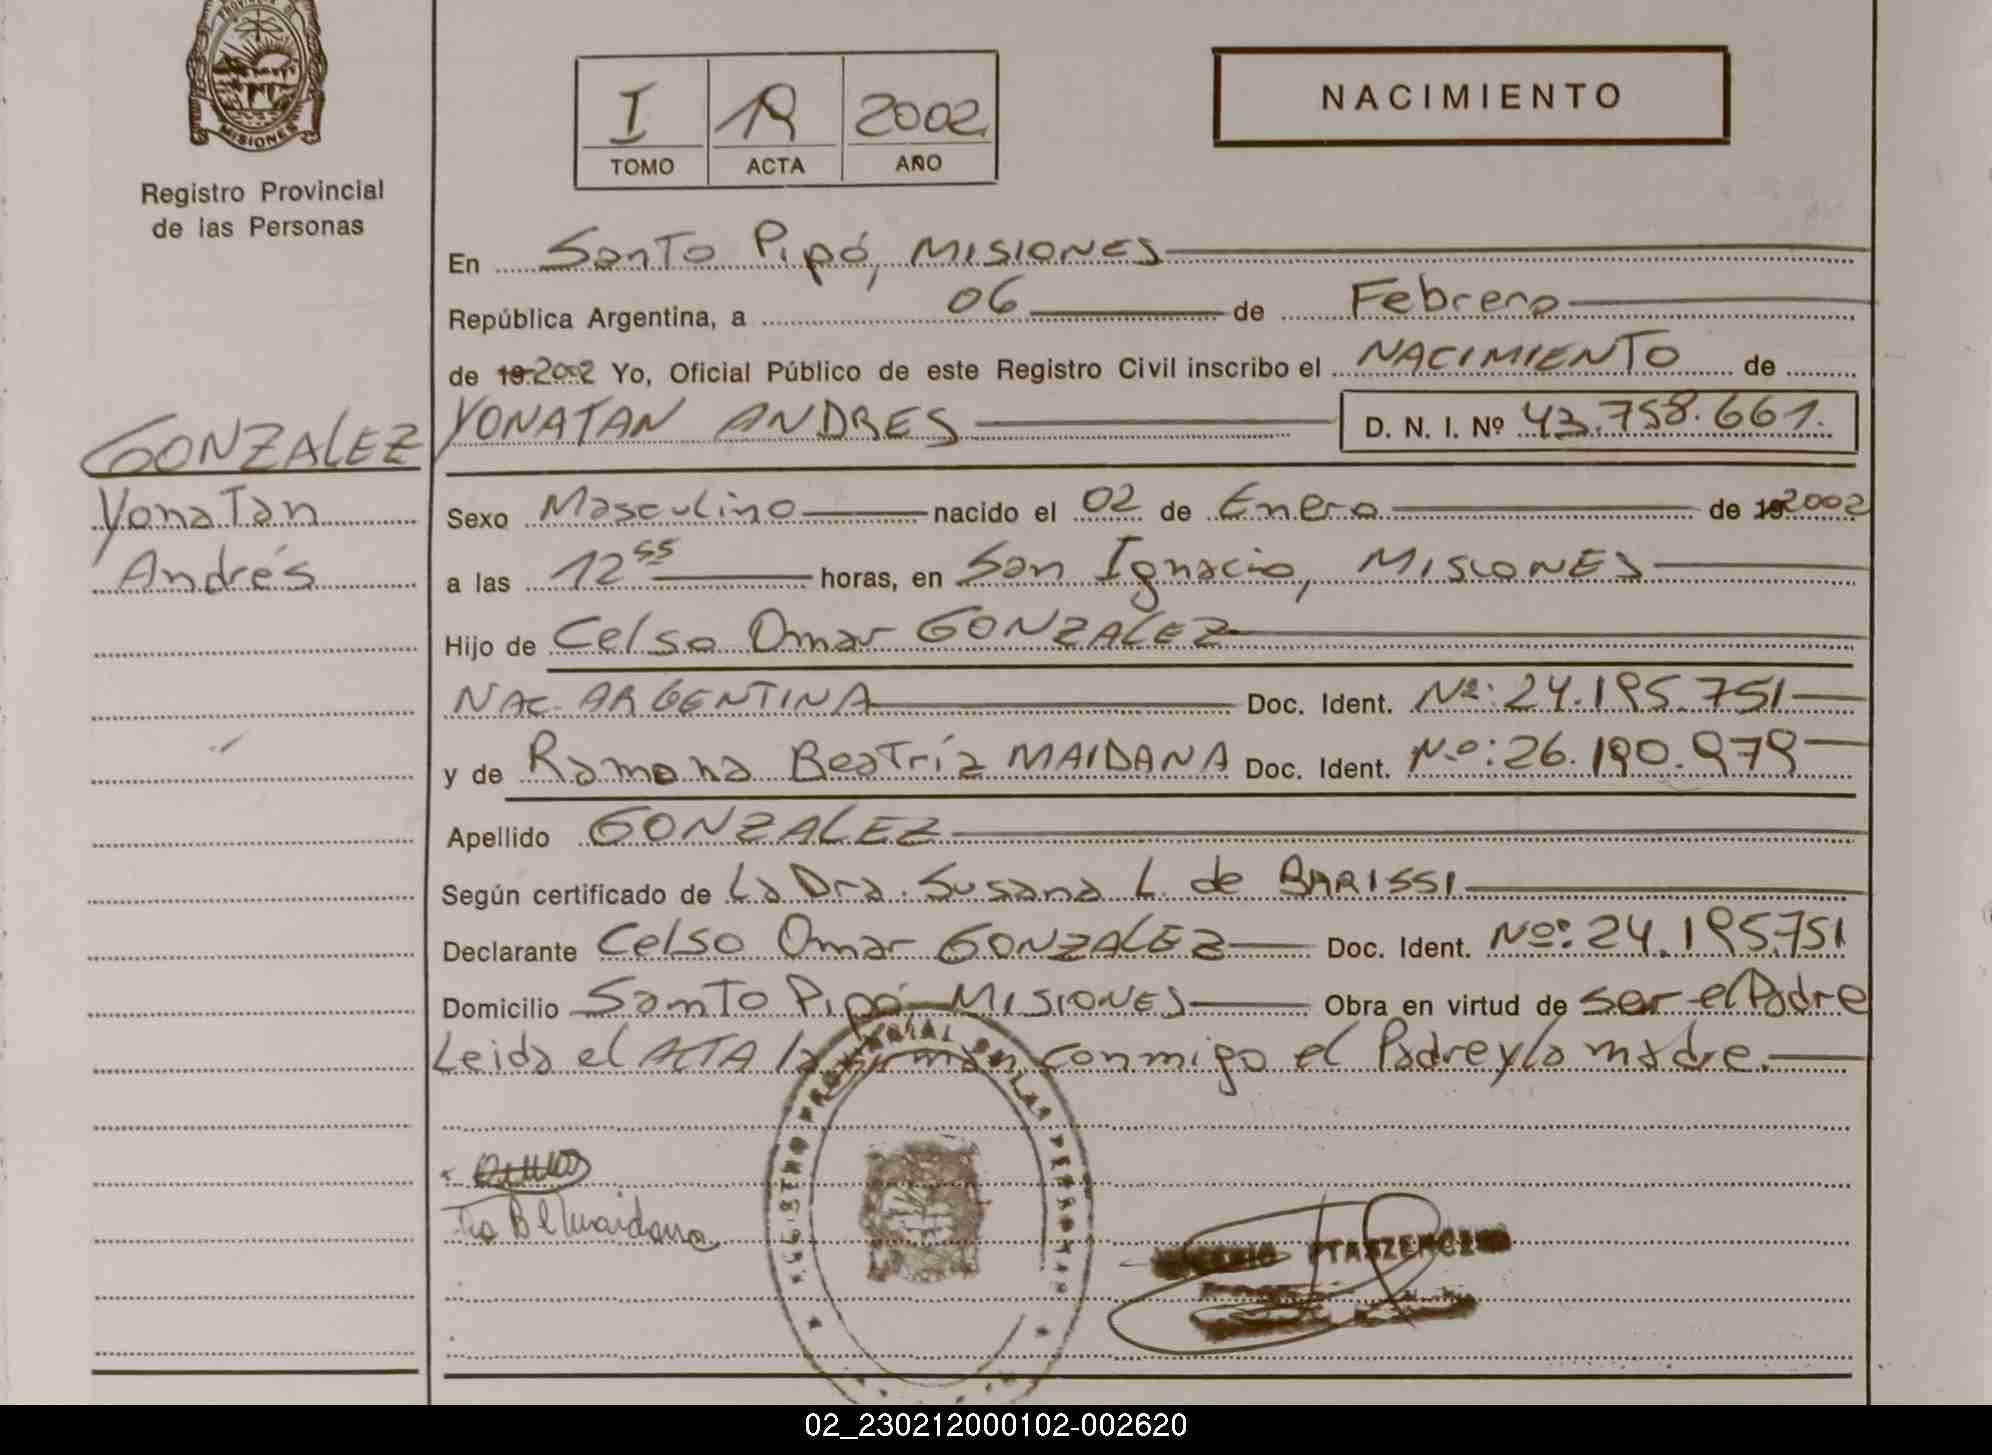 PROVINCIA DE
MISIONES
Registro Provincial
de las Personas
I 19 2002
TOMO ACTA AÑO
NACIMIENTO
En Santo Pipó, MISIONES
República Argentina, a 06 de Febrero
de 19 2002 Yo, Oficial Público de este Registro Civil inscribo el NACIMIENTO de
GONZALEZ YONATAN ANDRES D. N. I. Nº 43.758.661.
Yonatan
Andrés
Sexo Masculino nacido el 02 de Enero de 19 2002
a las 12 55 horas, en San Ignacio, MISIONES
Hijo de Celso Omar GONZALEZ
NAC. ARGENTINA Doc. Ident. Nº: 24.195.751
y de Ramona Beatríz MAIDANA Doc. Ident. Nº: 26.190.979
Apellido GONZALEZ
Según certificado de La Dra. Susana L. de BARISSI
Declarante Celso Omar GONZALEZ Doc. Ident. Nº: 24.195.751
Domicilio Santo Pipó, MISIONES Obra en virtud de ser el Padre
Leida el ACTA la firman conmigo el Padre y la madre.
REGISTRO PROVINCIAL DE LAS PERSONAS
Maidana
02_230212000102-002620